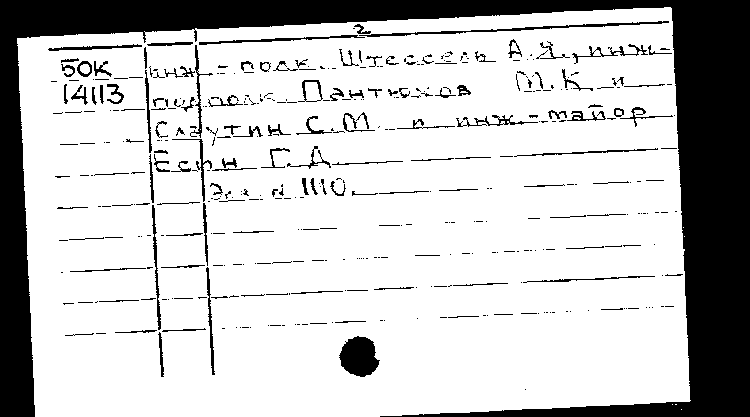 2
50К инж.-полк. Штессель А.Я., инж-
14113 подполк Пантюхов М.К. и
Слаутин С.М. и инж.-майор
Есин Г.Д.
Экз № 1110.